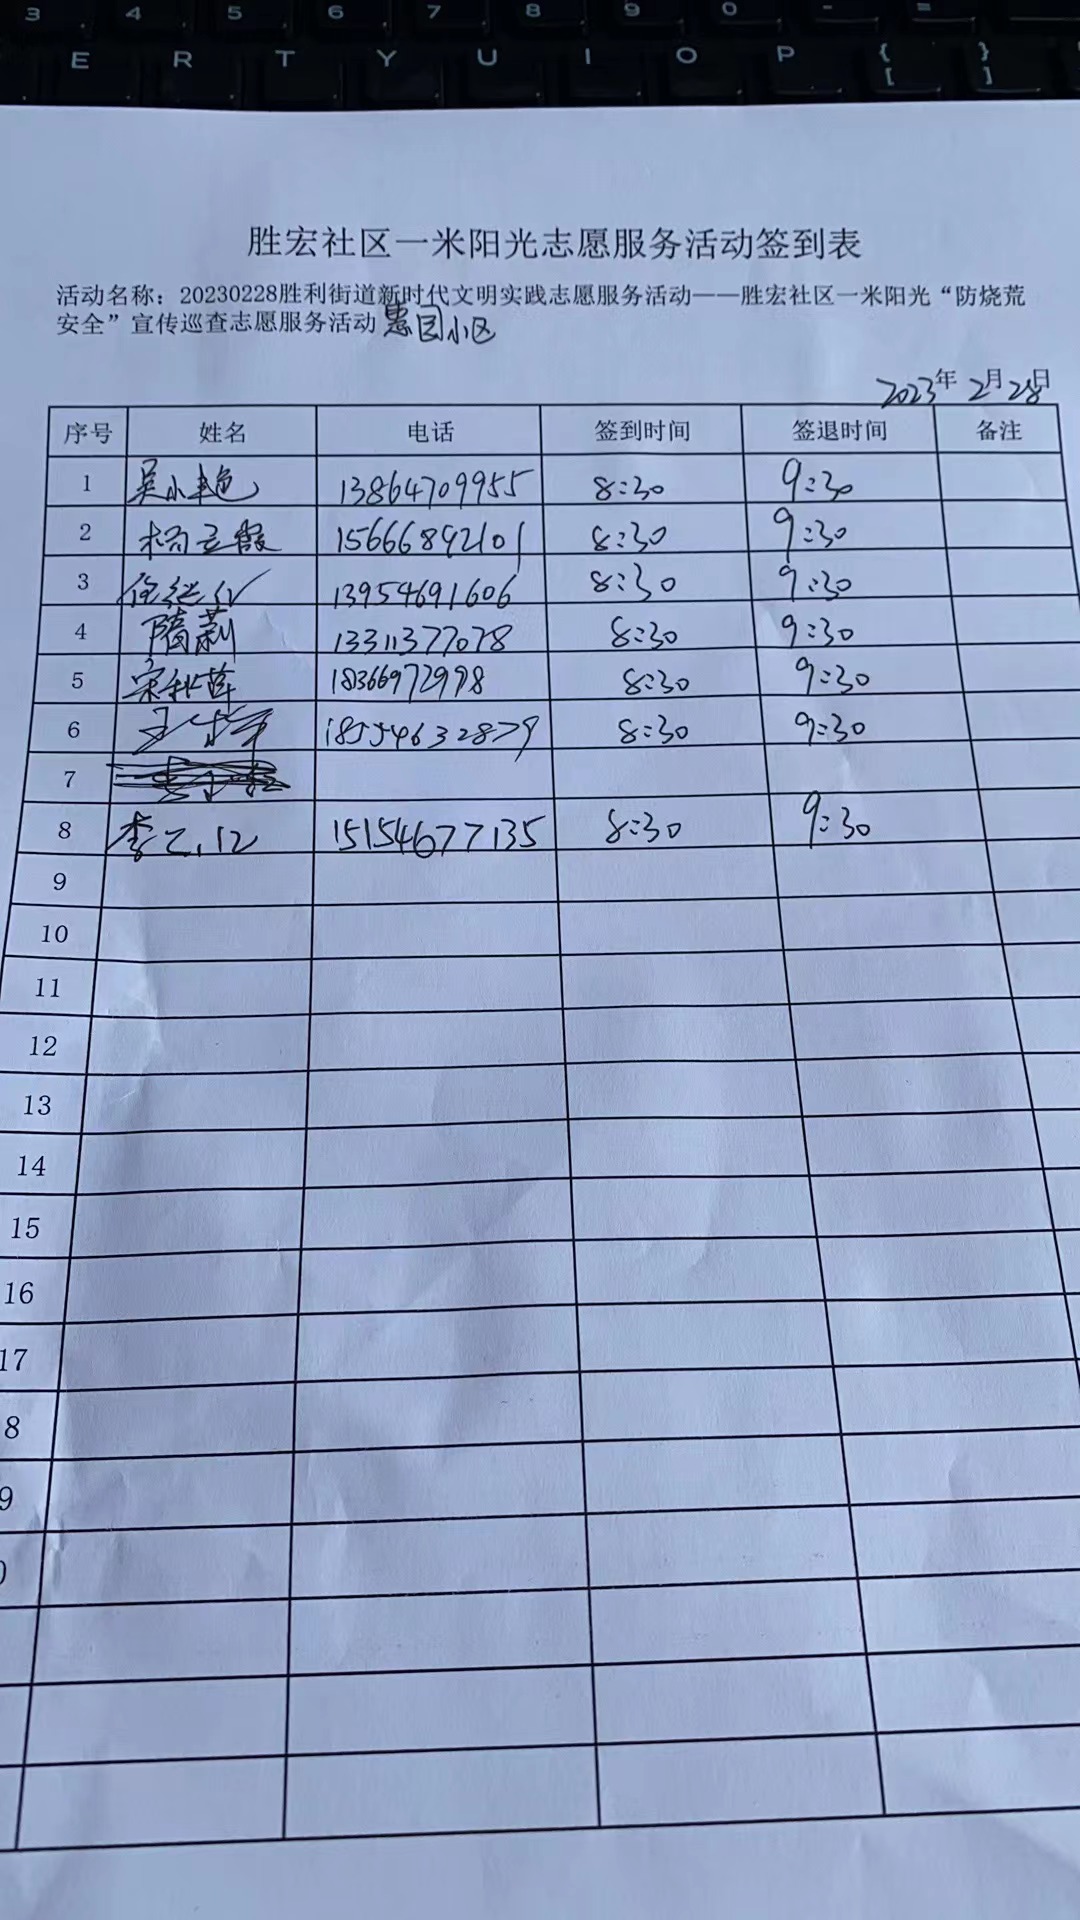 3 4 5 6 7 8 9 0 - =
E R T Y U I O P { }
[ ]
胜宏社区一米阳光志愿服务活动签到表
活动名称：20230228胜利街道新时代文明实践志愿服务活动——胜宏社区一米阳光“防烧荒
安全”宣传巡查志愿服务活动 惠园小区
2023年 2月28日
序号 姓名 电话 签到时间 签退时间 备注
1 吴小艳 13864709955 8:30 9:30
2 杨立霞 15666892101 8:30 9:30
3 13954691606 8:30 9:30
4 隋莉 13311377078 8:30 9:30
5 宋秋萍 18366972998 8:30 9:30
6 18554632879 8:30 9:30
7
8 李 15154677135 8:30 9:30
9
10
11
12
13
14
15
16
17
8
9
0